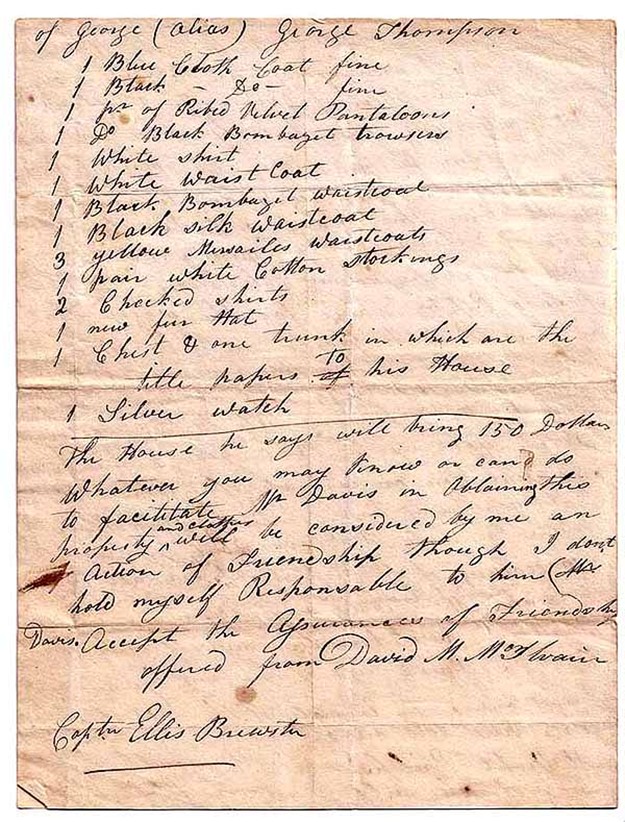 of George (alias) George Thompson
1 Blue Cloth Coat fine
1 Black - Do - fine
1 pr of Ribed Velvet Pantaloons
1 Do Black Bombazet trowsers
1 White shirt
1 White waist Coat
1 Black Bombazet waistcoat
1 Black silk waistcoat
3 yellow Mersailes waistcoats
1 pair white Cotton stockings
2 Checked shirts
1 new fur Hat
1 Chest & one trunk in which are the
title papers of to his House
1 Silver watch
The House he says will bring 150 Dollars
Whatever you may know or can do
to facilitate Mr Davis in Obtaining this
property and clothes will be considered by me an
Action of Friendship though I dont
hold myself Responsable to him (Mr
Davis. Accept the Assurances of Friendship
offered from David M. McIlvain
Captn Ellis Brewster